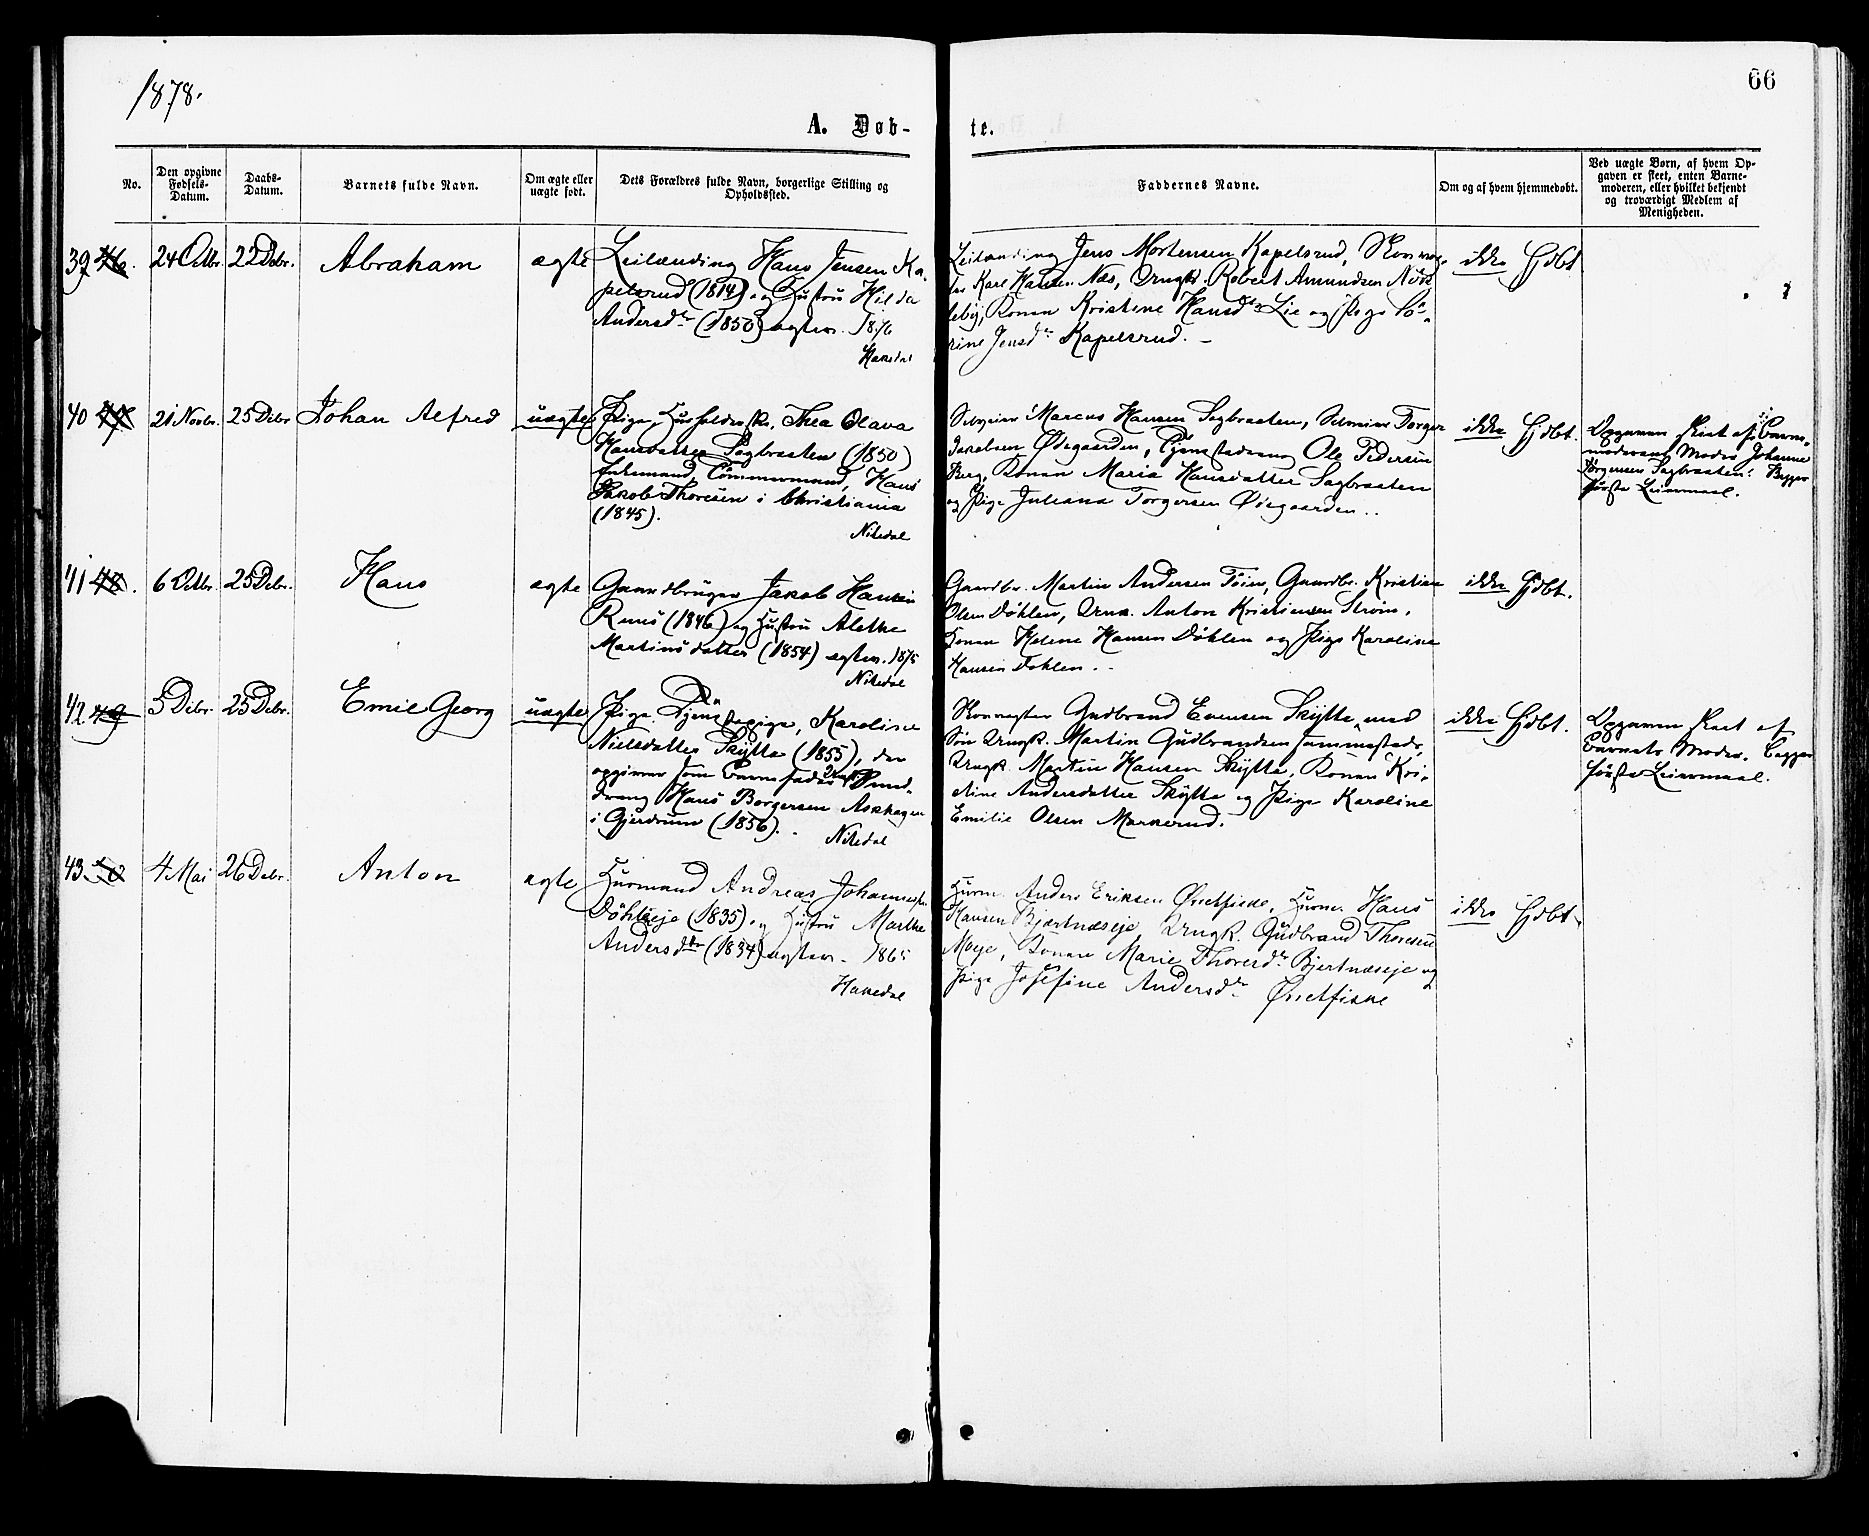 1878.
66
A. Døb-
te.
No.
Den opgivne
Fødsels-
Datum.
Daabs-
Datum.
Barnets fulde Navn.
Om ægte eller
uægte født.
Dets Forældres fulde Navn, borgerlige Stilling og
Opholdssted.
Faddernes Navne.
Om og af hvem hjemmedøbt.
Ved uægte Børn, af hvem Op-
gaven er skeet, enten Barne-
moderen, eller hvilket bekjendt
og troværdigt Medlem af
Menigheden.
39 46.
24 Octbr.
22 Debr.
Abraham
ægte
Leilænding Hans Jensen Ka-
pelsrud (1814) og Hustru Hilda
Andersdtr (1850) ægtev. 1876
Hakedal
Leilænding Jens Mortensen Kapelsrud, Skomag-
er Karl Hansen Næs, Ungk. Robert Amundsen
leby, Konen Kristine Hansdtr Lie og Pige Sø-
rine Jensdtr Kapelsrud. –
ikke Hjdbt
40 47
21 Novbr.
25 Debr
Johan Alfred
uægte
Pige, Husholderske, Thea Olava
Hansdatter Sagbraaten (1850)
Enkemand Tømmermand, Hans
Jakob Thoresen i Christiania
(1845).
Nitedal
Selveier Marcus Hansen Sagbraaten, Selveier Torger
Jakobsen Ødegaarden, Tjenestedreng Ole Pedersen
Berg, Konen Maria Hansdatter Sagbraaten
og Pige Juliana Torgersen Ødegaarden..
ikke Hjdbt.
Opgaven skeet af Barne-
moderens Moder Johanne
Jørgensen Sagbraaten. Begges
første Leiermaal.
41 48.
6 Octbr.
25 Debr.
Hans
ægte
Gaardbruger Jakob Hansen
(1846) og Hustru Alethe
Martinusdatter (1854) ægtev. 1875
Nitedal
Gaardbr. Martin Andersen Tøien, Gaardbr. Kristian
Olsen Døhlen, Anton Kristiansen Strøm,
Konen Helene Hansen Døhlen og Pige Karoline
Hansen Døhlen. –
ikke Hjdbt.
42 49
5 Debr.
25 Debr.
Emil Georg
uægte
Pige, Tjenestepige, Karoline
Nielsdatter Skytta (1855), der
opgiver som Barnefader Ungk. Smed-
dreng Hans Borgersen Askhagen
i Gjerdrum (1856).
Nitedal
Skomager Gudbrand Evensen Skytta, med
Søn Ungk. Martin Gudbrandsen sammesteds,
Ungk. Martin Hansen Skytta, Konen Kri-
stine Andersdatter Skytta og Pige Karoline
Emilie Olsen Markerud.
ikke Hjdbt.
Opgaven skeet af
Barnets Moder. Begges
første Leiermaal.
43 50
4 Mai
26 Debr.
Anton
ægte
Husmand Andreas Johannesen
Døhleneje (1835) og Hustru Marthe
Andersdtr (1834) ægtev. 1865
Hakedal
Husm. Anders Eriksen Ørretfiske, Husm. Hans
Hansen Bjertnæseje, Ungk. Gudbrand Thoresen
Moje, Konen Marie Thoresdtr Bjertnæseje og
Pige Josefine Andersdtr Ørretfiske
ikke Hjdbt.